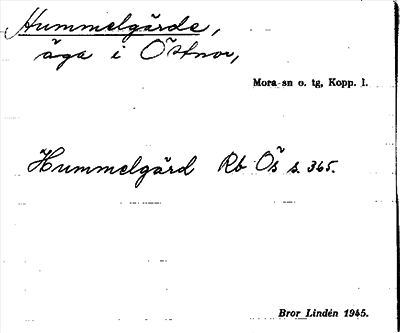 Hummelgårde,
äga i Östnor,
Mora sn o. tg, Kopp. l.
Hummelgård Rb Ös s. 365.
Bror Lindén 1945.